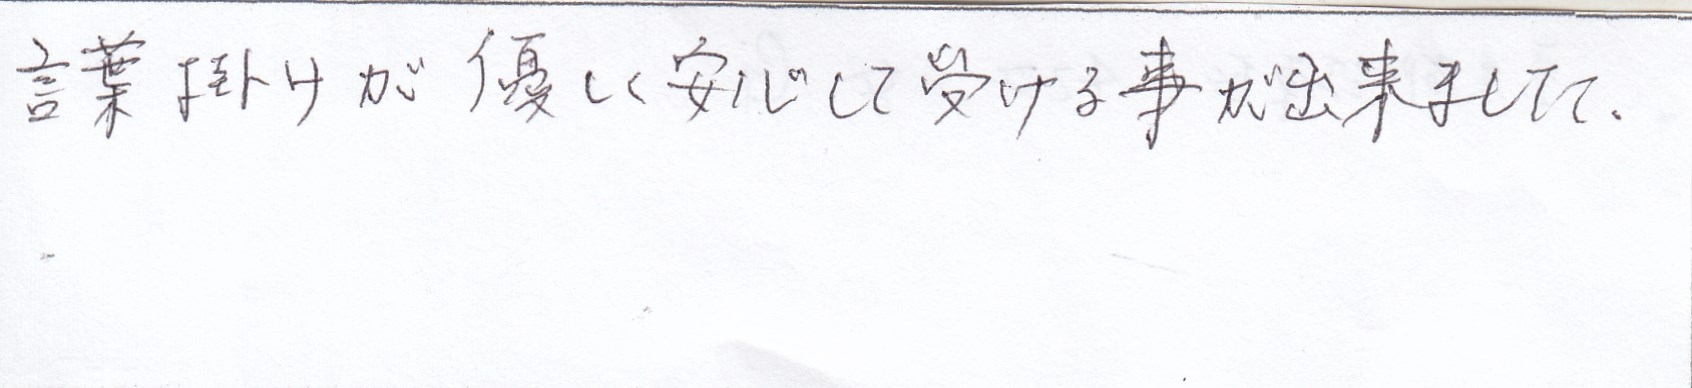 言葉掛けが優しく安心して受ける事が出来ました。